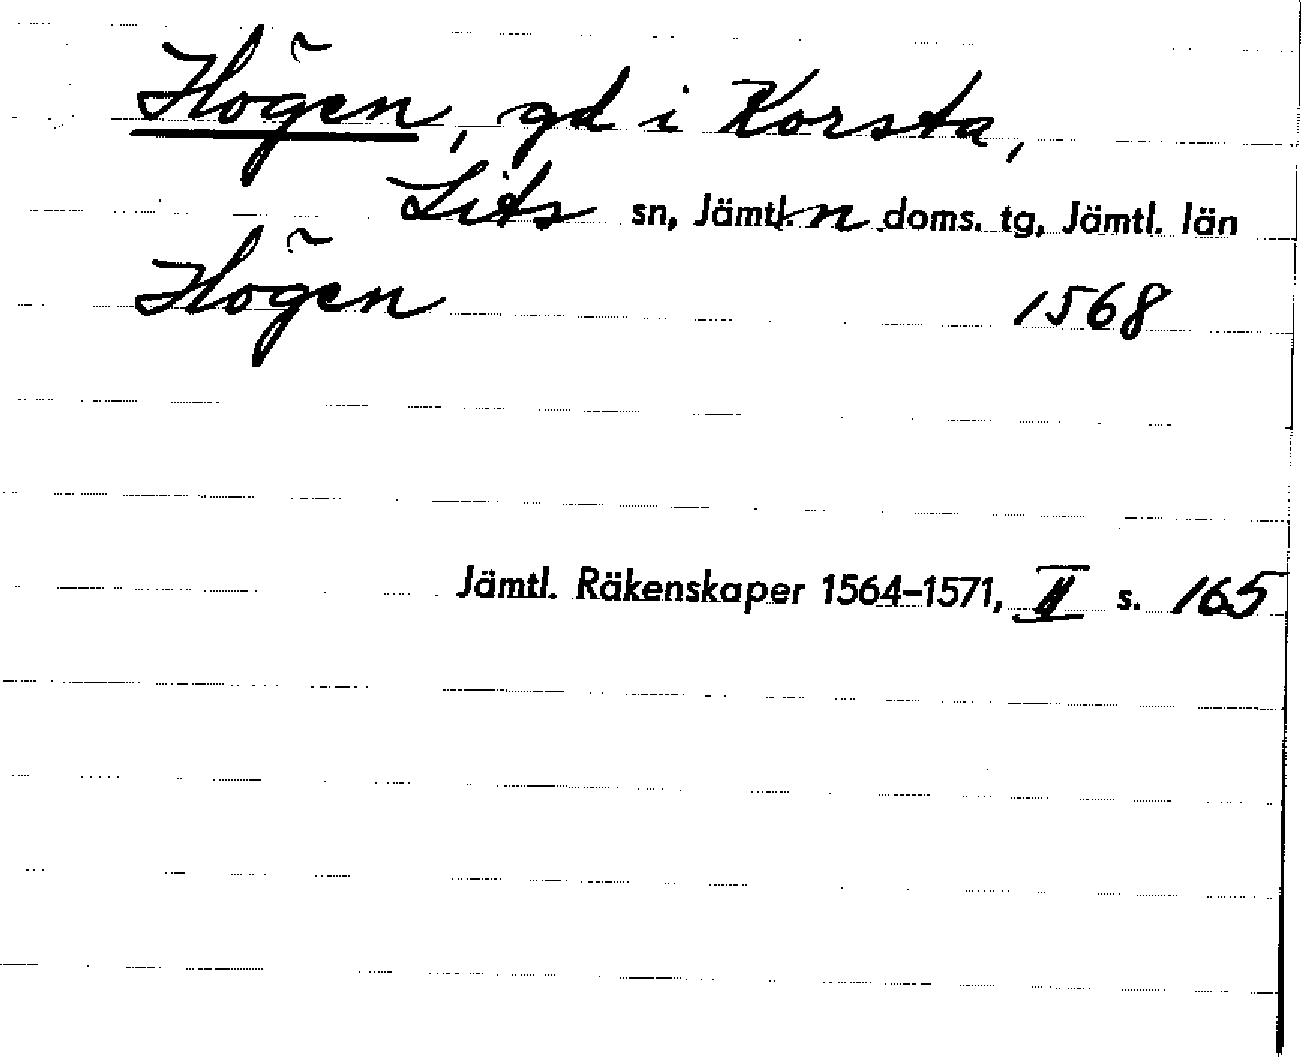 Högen, gd i Korsta,
Lits sn, Jämtl. n doms. tg, Jämtl. län
Högen 1568
Jämtl. Räkenskaper 1564–1571, II s. 165